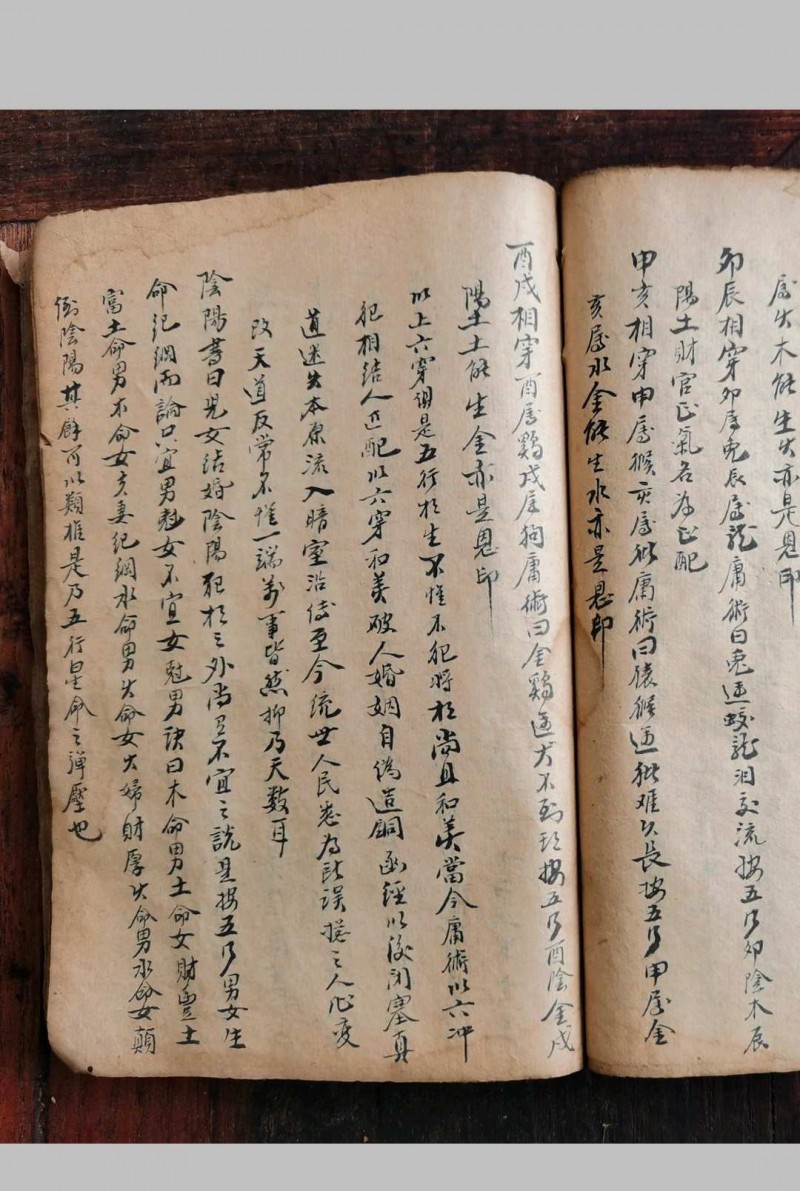 屬火木能生火亦是恩印
卯辰相穿卯屬兔辰屬龍庸術曰兔逢蛟龍淚交流按五行卯陰木辰
陽土財官正氣名為正配
申亥相穿申屬猴亥屬猪庸術曰猿猴逢猪难久長按五行申屬金
亥屬水金能生水亦是恩印
酉戌相穿酉屬鷄戌屬狗庸術曰金鷄逢犬不到頭按五行酉陰金戌
陽土土能生金亦是恩印
以上六穿俱是五行相生不惟不犯將相尚且和美當今庸術以六冲
犯相結人匹配以六穿和美破人婚姻自偽造銅函經以後闭塞真
道迷失本原流入暗室沿傳至今统世人民悉為所误按之人心变
改天道反常不惟一端萬事皆然抑乃天数耳
陰陽書曰兒女结婚陰陽犯相之外尚且不宜之說是按五行男女生
命纪綱而論只宜男尅女不宜女尅男訣曰木命男土命女財豐土
富土命男木命女夫妻纪綱水命男火命女大婦財厚火命男水命女顛
倒陰陽其餘可以類推是乃五行星命之彈壓也